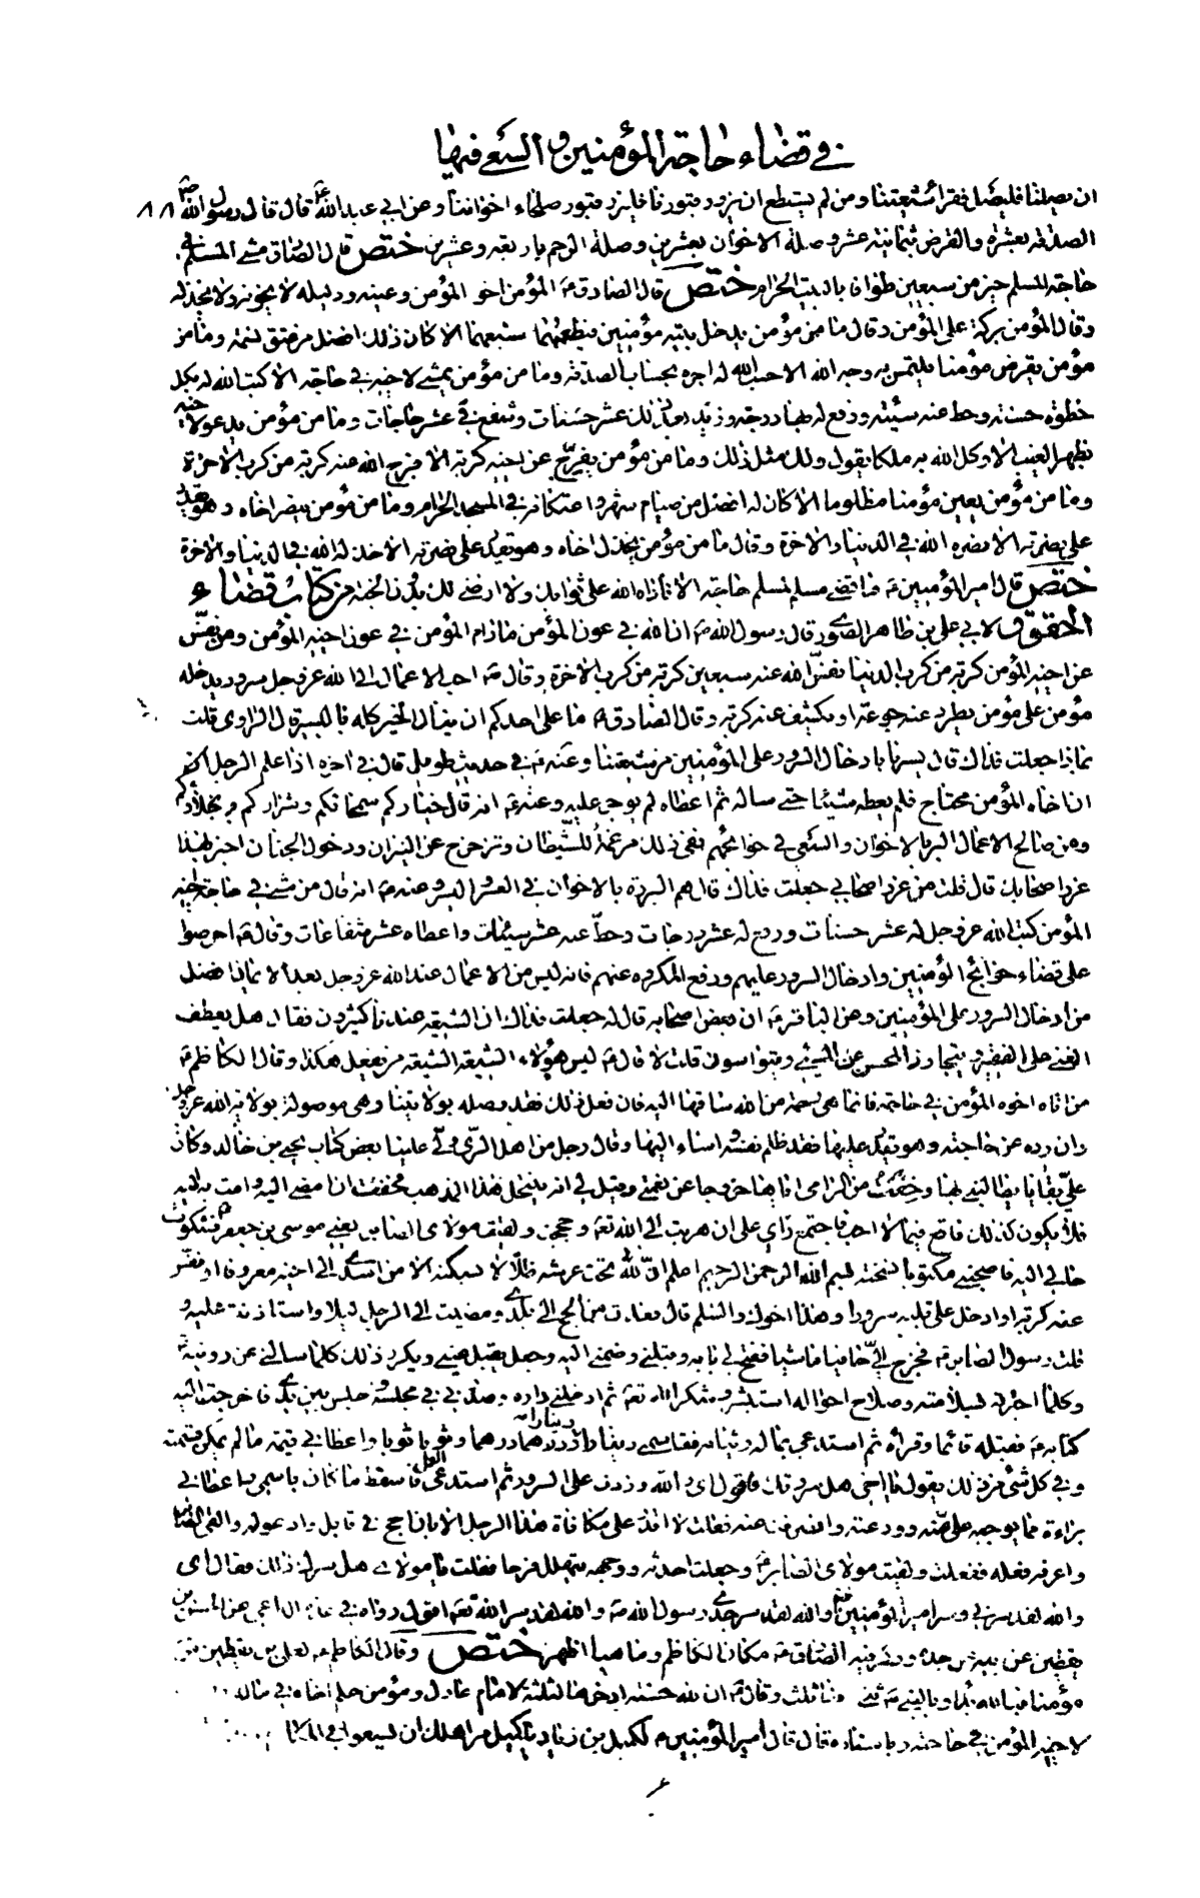 في قضاء حاجة المؤمنين و السعى فيها
ان يصلنا فليصل فقراء شيعتنا ومن لم يستطع ان يزور قبورنا فليزر قبور صلحاء اخواننا وعن ابي عبد الله ع قال قال رسول الله ص ٨٨
الصدقه بعشرة والقرض بثمانية عشر وصلة الاخوان بعشرين وصلة الرحم باربعة وعشرين ختص قال الصادق مشى المسلم في
حاجة المسلم خير من سبعين طوافا بالبيت الحرام ختص قال الصادق ع المؤمن اخو المؤمن وعينه ودليله لا يخونه ولا يخذله
وقال المؤمن بركة على المؤمن وقال ما من مؤمن يدخل بيته مؤمنين فيطعمهما شبعهما الا كان ذلك افضل من عتق نسمة وما من
مؤمن يقرض مؤمنا يلتمس به وجه الله الا حسب الله له اجره بحساب الصدقه وما من مؤمن يمشى لاخيه في حاجة الا كتب الله له بكل
خطوة حسنة وحط عنه سيئة ورفع له بها درجة وزيد بعد ذلك عشر حسنات وشفع في عشر حاجات وما من مؤمن يدعو لاخيه
بظهر الغيب الا وكل الله به ملكا يقول ولك مثل ذلك وما من مؤمن يفرج عن اخيه كربة الا فرج الله عنه كربة من كرب الاخرة
وما من مؤمن يعين مؤمنا مظلوما الا كان له افضل من صيام شهر واعتكافه في المسجد الحرام وما من مؤمن ينصر اخاه وهو يقدر
على نصرته الا نصره الله في الدنيا والاخرة وقال ما من مؤمن يخذل اخاه وهو يقدر على نصرته الا خذله الله في الدنيا والاخرة
ختص قال امير المؤمنين ع ما قضى مسلم لمسلم حاجة الا ناداه الله على ثوابك ولا ارضى لك بدون الجنة من كتاب قضاء
الحقوق لابي علي بن طاهر الصوري قال رسول الله ص ان الله في عون المؤمن ما دام المؤمن في عون اخيه المؤمن ومن نفس
عن اخيه المؤمن كربة من كرب الدنيا نفس الله عنه سبعين كربة من كرب الاخرة وقال ص احب الاعمال الى الله عز وجل سرور يدخله
مؤمن على مؤمن يطرد عنه جوعة او يكشف عنه كربة وقال الصادق ع ما على احدكم ان ينال الخير كله باليسير قال الراوى قلت
بماذا جعلت فداك قال يسرنا بادخال السرور على المؤمنين من شيعتنا وعنه ع في حديث طويل قال في اخره اذا علم الرجل
ان اخاه المؤمن محتاج فلم يعطه شيئا حتى ساله ثم اعطاه لم يوجر عليه وعنه ع انه قال خياركم سمحائكم وشراركم بخلاؤكم
ومن صالح الاعمال البر بالاخوان والسعى في حوائجهم ففى ذلك مرغمة للشيطان وتزحزح عن النيران ودخول الجنان اخبر بهذا
غرر اصحابك قال قلت من غرر اصحابي جعلت فداك قال هم البررة بالاخوان في العسر واليسر وعنه ع انه قال من مشى في حاجة اخيه
المؤمن كتب الله عز وجل له عشر حسنات ورفع له عشر درجات وحط عنه عشر سيئات واعطاه عشر شفاعات وقال ع احرصوا
على قضاء حوائج المؤمنين وادخال السرور عليهم ودفع المكروه عنهم فانه ليس من الاعمال عند الله عز وجل بعد الايمان افضل
من ادخال السرور على المؤمنين وعن الباقر ع ان بعض اصحابه قال له جعلت فداك ان الشيعة عندنا كثيرون فقال هل يعطف
الغنى على الفقير ويتجاوز المحسن عن المسئ ويتواسون قلت لا قال ع ليس هؤلاء الشيعة الشيعة من يفعل هكذا وقال الكاظم ع
من اتاه اخوه المؤمن في حاجة فانما هى رحمة من الله ساقها اليه فان فعل ذلك فقد وصله بولايتنا وهى موصولة بولاية الله عز وجل
وان رده عن حاجته وهو يقدر عليها فقد ظلم نفسه واساء اليها وقال رجل من اهل الرى ولى علينا بعض كتاب يحيى بن خالد وكان
على بقايا يطالبنى بها وخفت من الزامى اياها خروجا عن نعمتى وقيل لى انه ينتحل هذا المذهب فخفت ان امضى اليه وامت به اليه
فلا يكون كذلك فاقع فيما لا احب فاجتمع راى على ان هربت الى الله تعه وحججت ولقيت مولاى الصابر يعنى موسى بن جعفر ع فشكوت
حالى اليه فاصحبنى مكتوبا نسخته بسم الله الرحمن الرحيم اعلم ان لله تحت عرشه ظلا لا يسكنه الا من اسدى الى اخيه معروفا او نفس
عنه كربة او ادخل على قلبه سرورا وهذا اخوك والسلم قال فعدت من الحج الى بلدى ومضيت الى الرجل ليلا واستاذنت عليه و
قلت رسول الصابر ع فخرج الى حافيا ماشيا ففتح لى بابه وقبلنى وضمنى اليه وجعل يقبل عينى ويكرر ذلك كلما سالنى عن رؤيته ع
وكلما اخبرته بسلامته وصلاح احواله استبشر وشكر الله تعه ثم ادخلنى داره وصدرنى في مجلسه وجلس بين يدى فاخرجت اليه
كتابه ع فقبله قائما وقراه ثم استدعى بماله وثيابه فقاسمنى دينارا دينارا ودرهما درهما وثوبا ثوبا واعطانى قيمة ما لم يمكن قسمته
وفي كل شئ من ذلك يقول يا اخى هل سررتك فاقول اى والله وزدت على السرور ثم استدعى العمل فاسقط ما كان باسمى واعطانى
براءة مما يوجبه على منه وودعته وانصرفت عنه فقلت لا اقدر على مكافاة هذا الرجل الا بان احج في قابل وادعو له والقى الصابر
واعرفه فعله ففعلت ولقيت مولاى الصابر ع وجعلت احدثه ووجهه يتهلل فرحا فقلت يا مولاى هل سرك ذلك فقال اى
والله لقد سرنى وسر امير المؤمنين ع والله لقد سر جدى رسول الله ص والله لقد سر الله تعه اقول رواه في عدة الداعى عن الحسن بن
يقطين عن ابيه عن جده وذكر فيه الصادق ع مكان الكاظم وما هيها اظهر ختص وقال الكاظم ع لعلى بن يقطين من سر
مؤمنا فبالله بدا وبالنبى ص ثنى وبنا ثلث وقال ع ان لله حسنة ادخرها لثلثة لامام عادل ومؤمن حكم اخاه في ماله
لاخيه المؤمن في حاجته وباسناده قال قال امير المؤمنين ع لكميل بن زياد يا كميل مر اهلك ان يسعوا في المكا